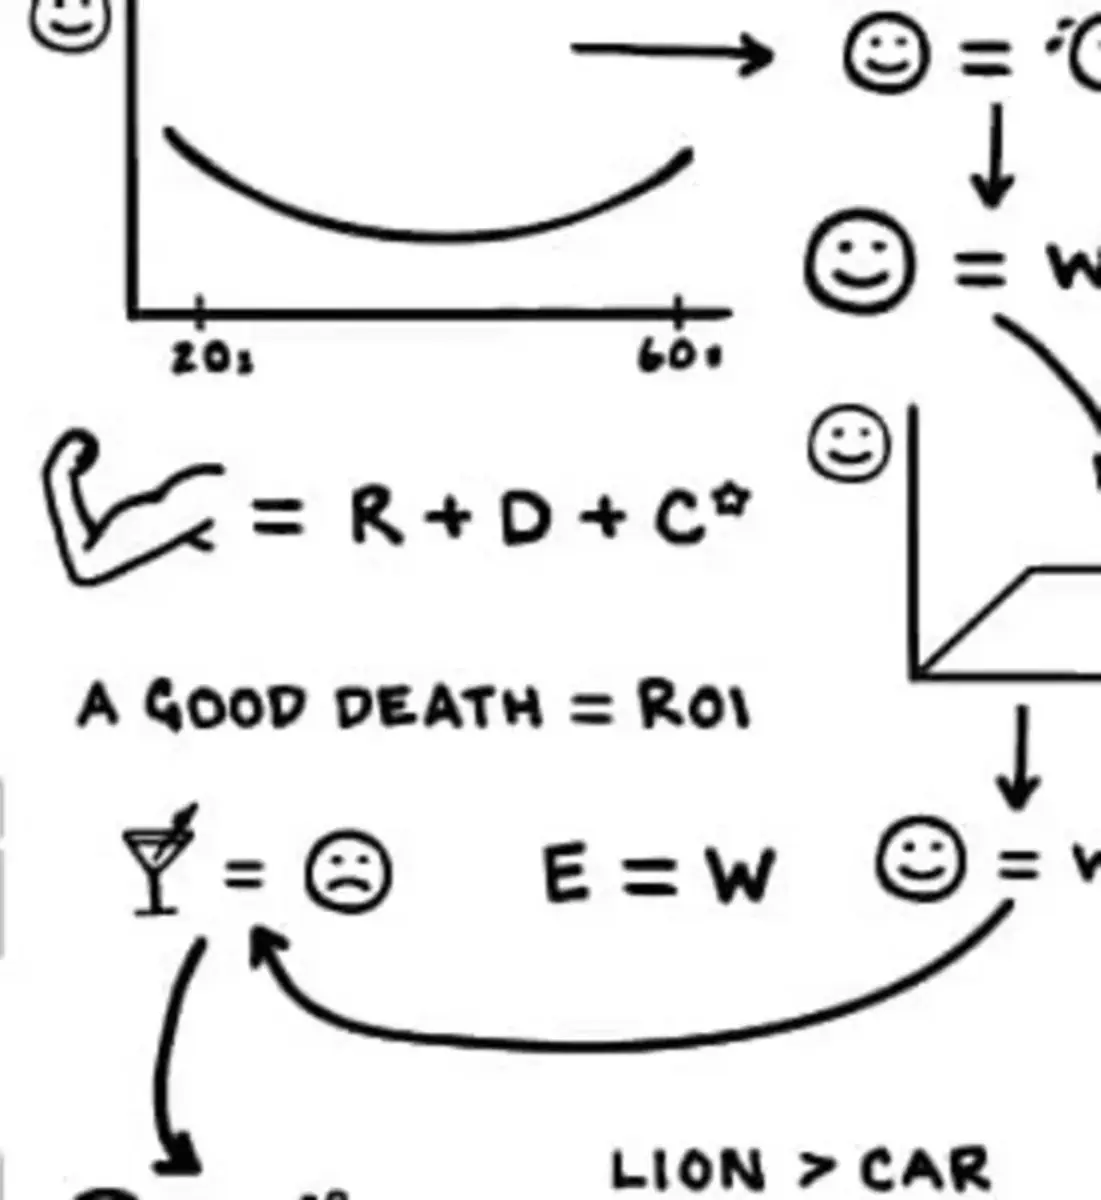 =
= W
20s 60s
= R + D + C☆
A GOOD DEATH = ROI
= E = W =
LION > CAR